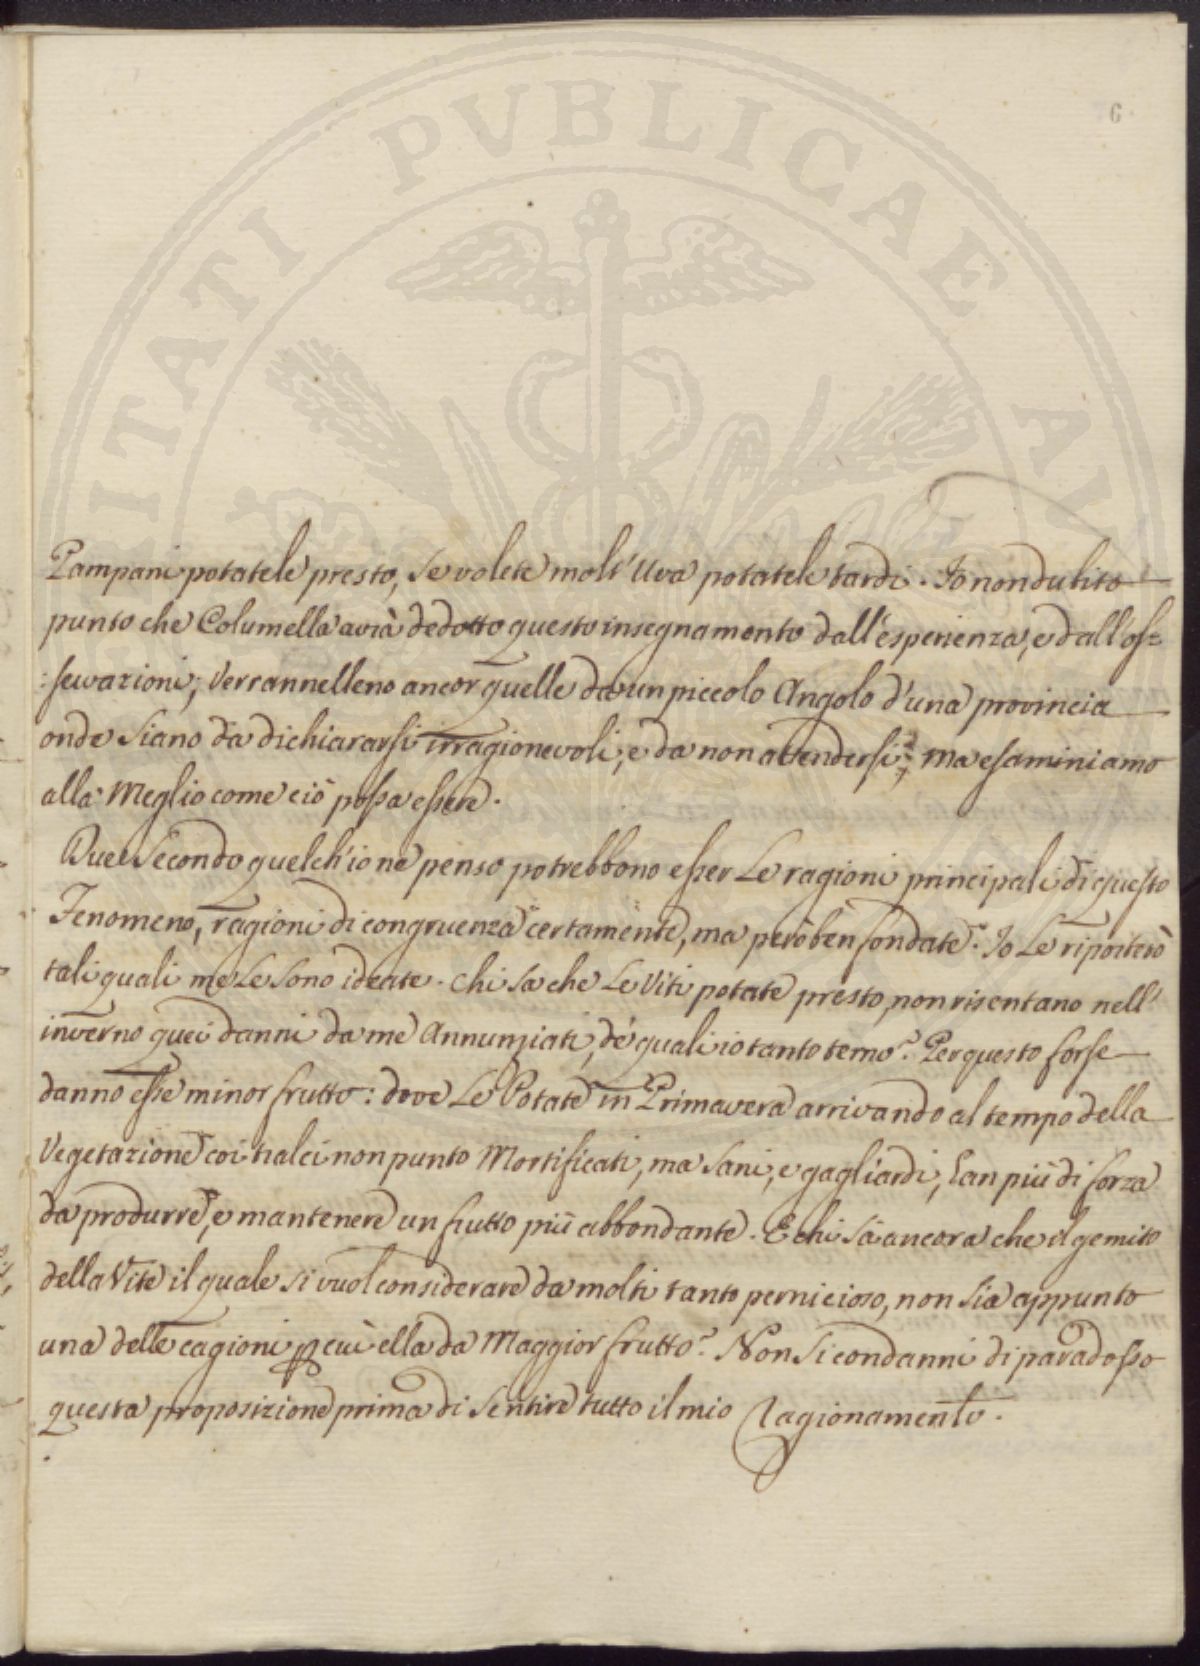 PVBLICAE
ITATI
6
Pampani potatele presto, se volete molt'Uva potatele tardi. Io non dubito
punto che Columella avrà dedotto questo insegnamento dall'esperienza, e dall'os=
:servazioni; Verrannelleno ancor quelle da un piccolo Angolo d'una provincia
onde siano da dichiararsi irragionevoli, e da non attendersi; ma esaminiamo
alla Meglio come ciò possa essere.
Due Secondo quelch'io ne penso potrebbono esser Le ragioni principali di questo
Fenomeno, ragioni di congruenza certamente, ma però ben fondate. Io Le riporterò
tali quali me Le sono ideate. Chi sa che Le Viti potate presto, non risentano nell'
inverno quei danni da me Annunziati, de' quali io tanto temo? Per questo forse
danno esse minor frutto: dove Le Potate in Primavera arrivando al tempo della
Vegetazione coi tralci non punto Mortificati, ma sani, e gagliardi, han più di forza
da produrre, e mantenere un frutto più abbondante. E chi sà ancora che il gemito
della Vite il quale si vuol considerare da molti tanto pernicioso, non sia appunto
una delle cagioni per cui ella da Maggior frutto? Non si condanni di paradosso
questa proposizione prima di sentire tutto il mio Ragionamento.